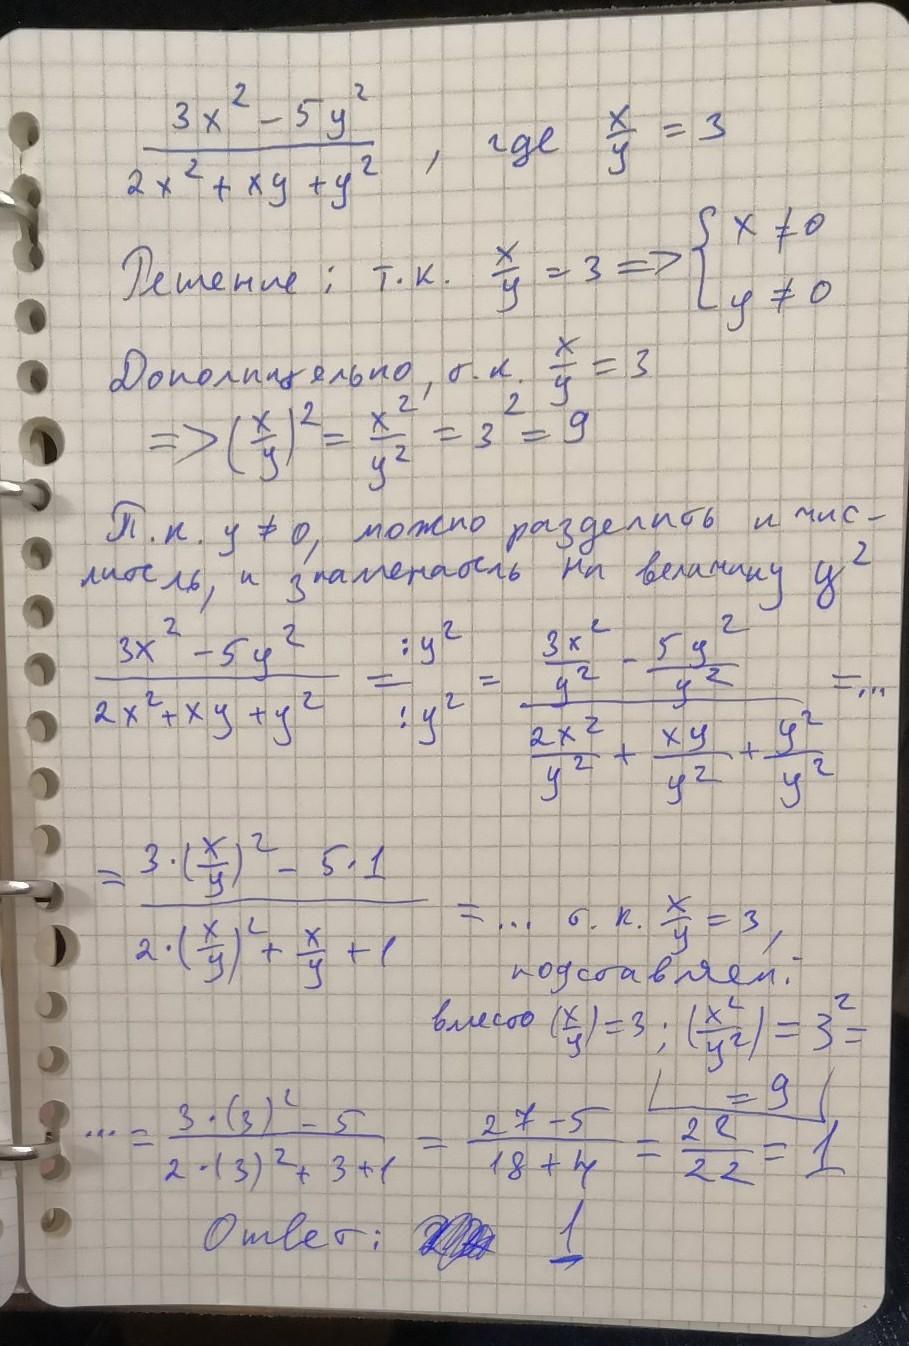 (3x² - 5y²)/(2x² + xy + y²), где x/y = 3
Решение: т.к. x/y = 3 => { x ≠ 0
y ≠ 0
Дополнительно, т.к. x/y = 3
=> (x/y)² = x²/y² = 3² = 9
Т.к. y ≠ 0, можно разделить и чис-
литель, и знаменатель на величину y²
(3x² - 5y²)/(2x² + xy + y²) = :y²/:y² = (3x²/y² - 5y²/y²)/(2x²/y² + xy/y² + y²/y²) = ...
= (3·(x/y)² - 5·1)/(2·(x/y)² + x/y + 1) = ... т.к. x/y = 3,
подставляем:
вместо (x/y) = 3 ; (x²/y²) = 3² =
= 9
... = (3·(3)² - 5)/(2·(3)² + 3 + 1) = (27 - 5)/(18 + 4) = 22/22 = 1
Ответ: 1